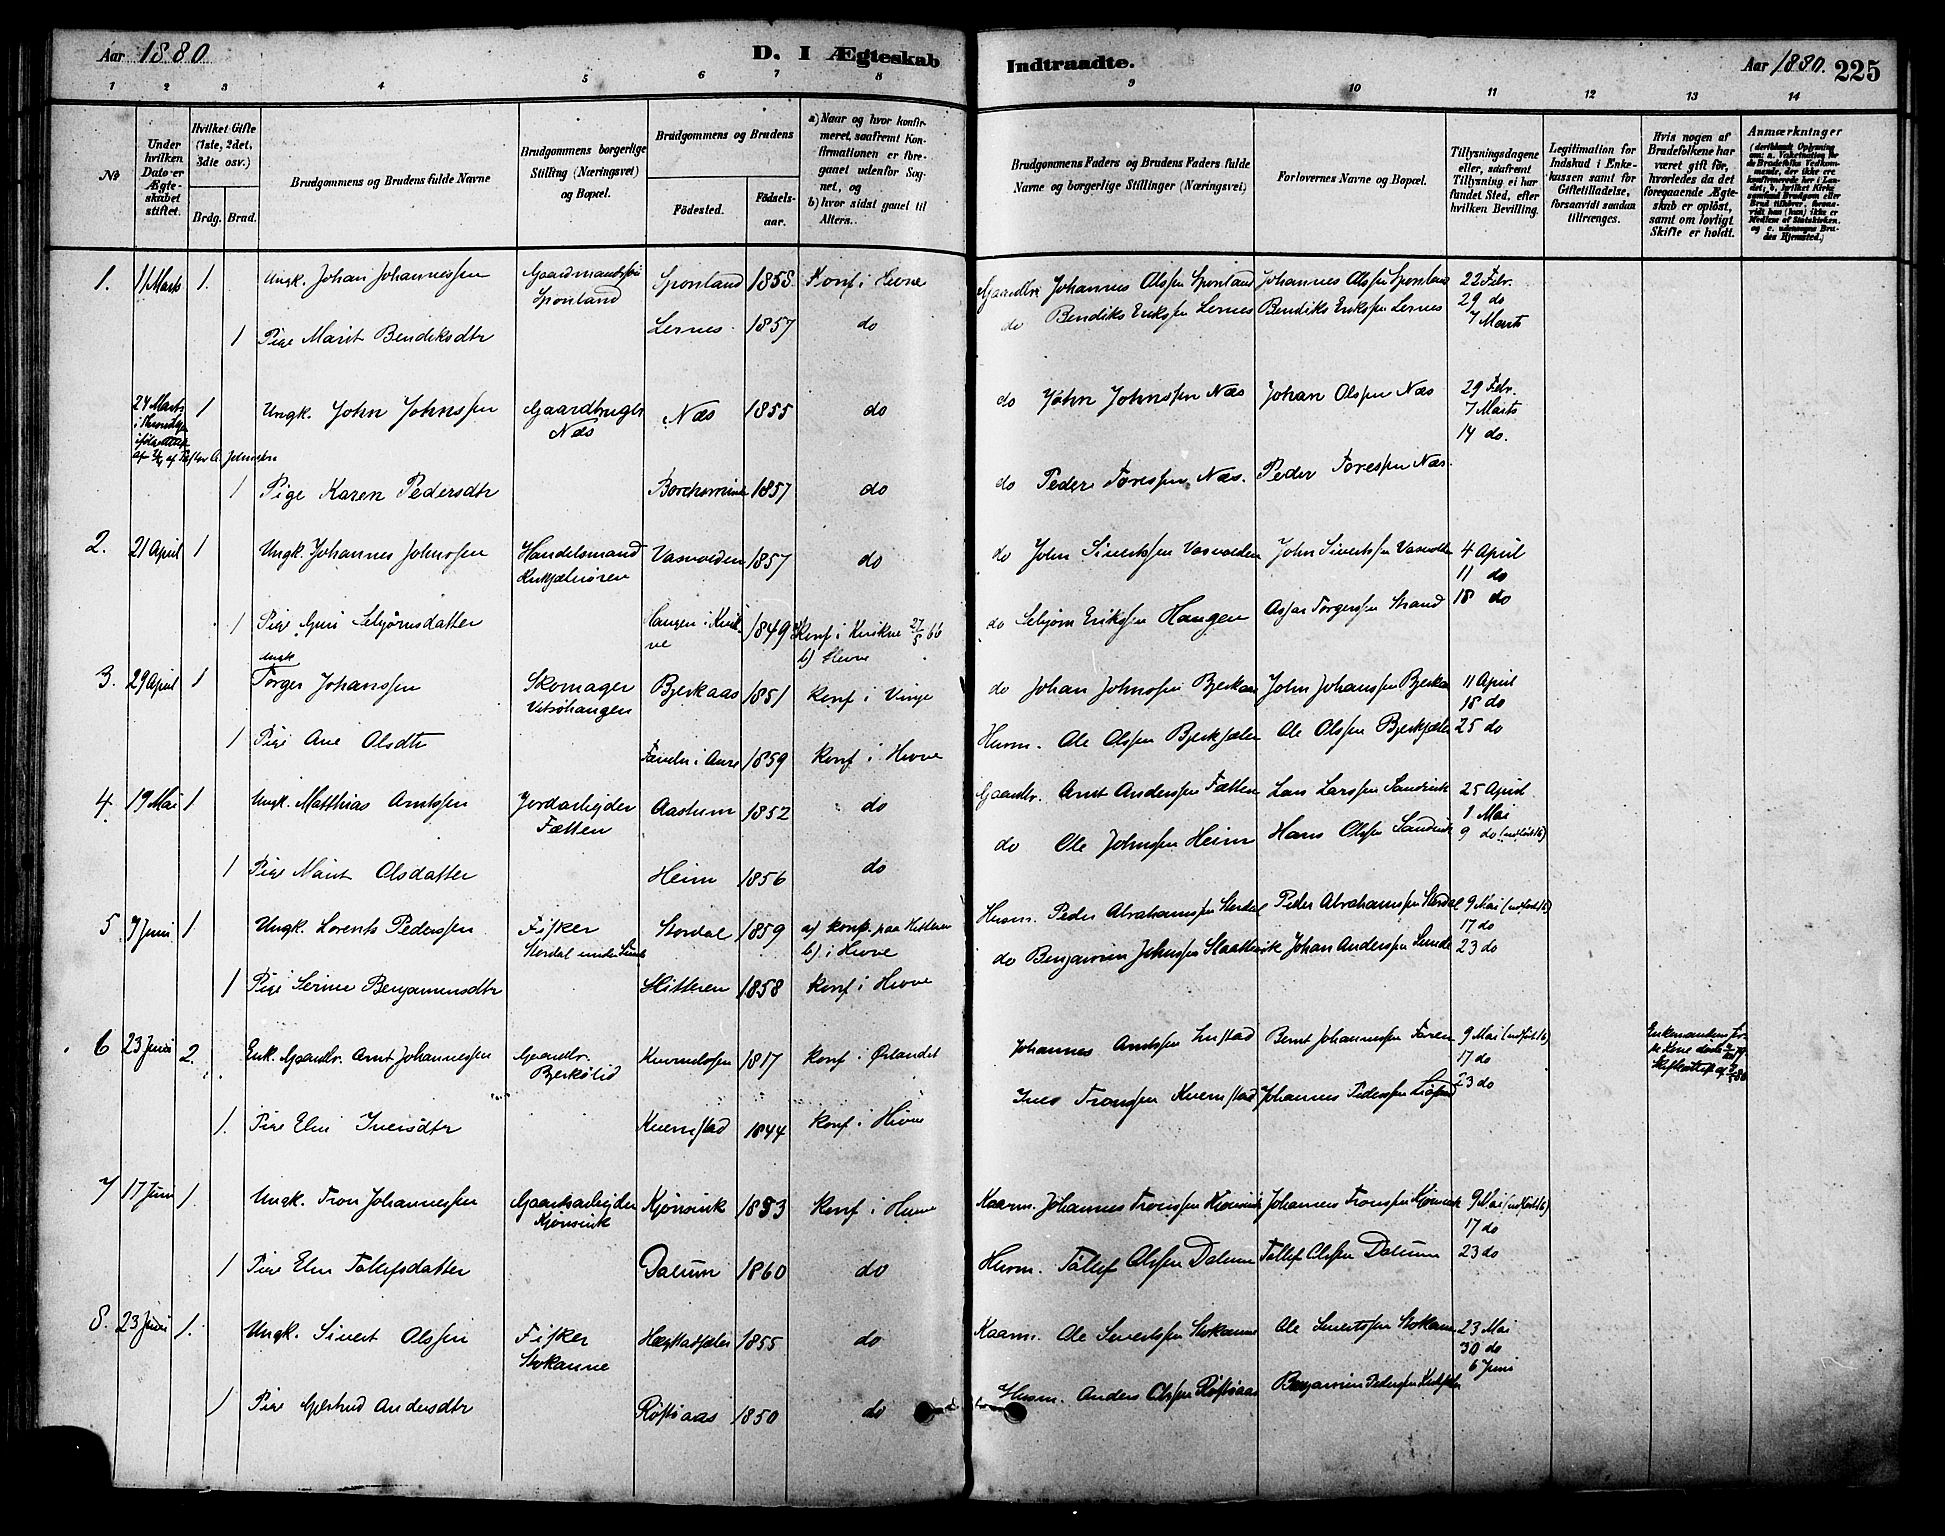 Aar 1880
D. I Ægteskab
Indtraadte.
Aar 1880.
225
1 2 3 4 5 6 7 8
9 10 11 12 13 14
No
Under hvilken Dato er Ægteskabet stiftet.
Hvilket Gifte (1ste, 2det, 3die osv.)
Brdg. Brud.
Brudgommens og Brudens fulde Navne
Brudgommens borgerlige Stilling (Næringsvei) og Bopæl.
Brudgommens og Brudens
Fødested.
Fødselsaar.
a) Naar og hvor konfirmeret, saafremt Konfirmationen er foregaaet udenfor Sognet, og
b) hvor sidst gaaet til Alters.
Brudgommens Faders og Brudens Faders fulde Navne og borgerlige Stillinger (Næringsvei)
Forlovernes Navne og Bopæl.
Tillysningsdagene eller, saafremt Tillysning ei har fundet Sted, efter hvilken Bevilling.
Legitimation for Indskud i Enkekassen samt for Giftetilladelse, forsaavidt saadan tiltrænges.
Hvis nogen af Brudefolkene har været gift før, hvorledes da det foregaaende Ægteskab er opløst, samt om lovligt Skifte er holdt.
Anmærkninger
1. 11 Marts 1. Ungk. Johan Johannessen Gaardmandssøn Sponland Sponland 1858. Konf. i Hevne Gaardbr. Johannes Olssen Sponland Johannes Olssen Sponland 22 Febr. 29 do 7 Marts
1 Pige Marit Bendiksdtr Lernes 1857 do do Bendiks Erikssen Lernes Bendiks Erikssen Lernes
24 Marts 1 Ungk. John Johnssen Gaardbruger Næs Næs 1855 do do John Johnssen Næs Johan Olssen Næs 29 Febr. 7 Marts 14 do.
1 Pige Karen Pedersdtr 1857 do do Peder Toressen Næs. Peder Toressen Næs.
2. 21 April 1 Ungk. Johannes Johnssen Handelsmand Vasvolden 1857 do do John Sivertssen Vasvolden John Sivertssen Vasvolden 4 April 11 do 18 do
1 Pige Guri Esbjørnsdatter Haugen i Kvikne 1849 Konf i Kvikne 27/5 66 b) Hevne do Esbjørn Erikssen Haugen
3. 29 April 1 Ungk Torger Johanssen Skomager Bjerkaas 1851 Konf i Vinje do Johan Johnssen Bjerkaas John Johanssen Bjerkaas 11 April 18 do 25 do
1 Pige Ane Olsdtr 1859 Konf i Hevne Husm. Ole Olssen Ole Olssen
4. 19 Mai 1 Ungk. Matthias Arntssen Jordarbejder Fætten Aastum 1852 do Gaardbr. Arnt Anderssen Fætten Lars Larssen Sandvik 25 April 1 Mai 9 do
1 Pige Marit Olsdatter Heim 1856 do do Ole Johnssen Heim Hans Olssen Sandvik
5 7 Juni 1. Ungk. Lorents Pederssen Fisker Stordal under Sunde Stordal 1859 a) Konf. paa Hitteren b) i Hevne Husm. Peder Abrahamssen Stordal Peder Abrahamssen Stordal 9 Mai 17 do 23 do
1 Pige Serine Benjaminsdtr Hitteren 1858 Konf i Hevne do Benjamin Johnssen Slaattevik Johan Anderssen Sunde
6 23 Juni 2. Enk. Gaardbr. Arnt Johannessen Gaardbr. Bjerkølid 1817 Konf i Ørlandet Johannes Arntssen Bernt Johannessen 9 Mai 17 do 23 do
1. Pige Elen Iversdtr Kvernstad 1844 Konf i Hevne Iver Tronssen Kvernstad Johannes Pederssen
7 17 Juni 1. Ungk. Tron Johannessen Gaardsarbejder Kjønsvik Kjønsvik 1853 Konf i Hevne Kaarm. Johannes Tronssen Kjønsvik Johannes Tronssen Kjønsvik 9 Mai 17 do 23 do
1 Pige Elen Tollefsdatter Dalum 1860 do Husm. Tollef Olssen Dalum Tollef Olssen Dalum
8. 23 Juni 1. Ungk. Sivert Olssen Fisker Stokanne 1855 do Kaarm. Ole Sivertssen Stokanne Ole Sivertssen Stokanne 23 Mai 30 do 6 Juni
1 Pige Gjertrud Andersdtr Røstøaas 1850 do Husm. Anders Olssen Røstøaas Benjamin Pederssen